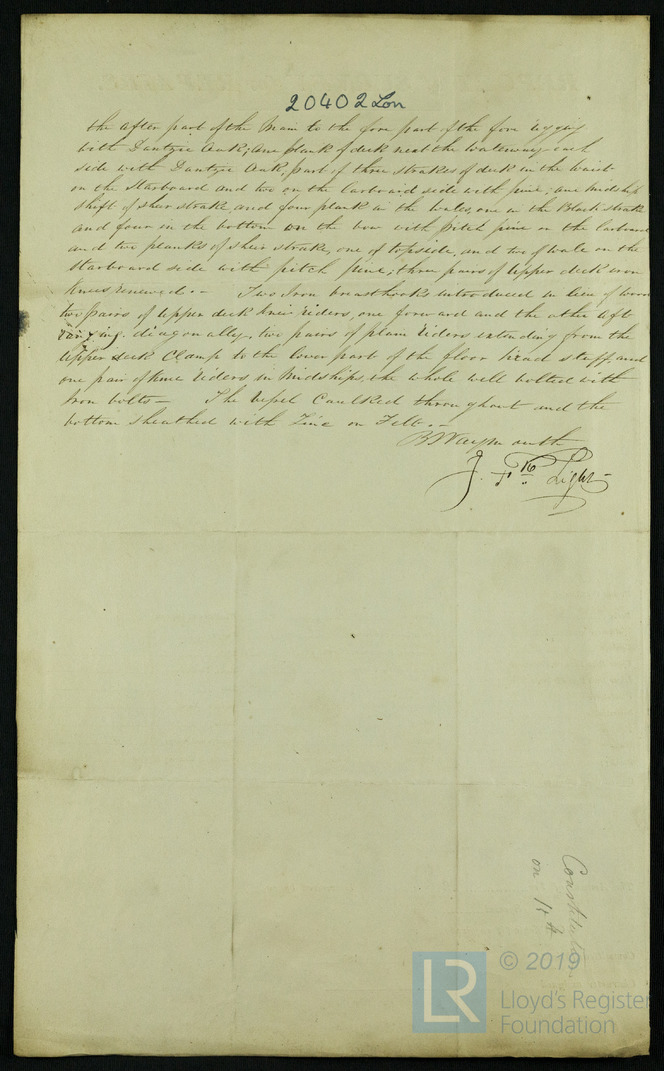 20402 Lon
the after part of the Main to the fore part of the fore rigging
with Dantzic Oak; one plank of deck next the waterway each
side with Dantzic Oak, part of three strakes of deck in the Waist
on the Starboard and two on the larboard side with pine, one midship
shift of sheer strake, and four plank in the Wales, one in the Black strake
and four in the bottom on the bow with pitch pine on the larboard
and two planks of sheer strake, one of topside, and two of wale on the
starboard side with pitch pine; three pairs of Upper deck iron
Knees renewed. — Two Iron breasthooks introduced in lieu of worn
two pairs of Upper deck knee riders, one forward and the other aft
ranging diagonally, two pairs of plain riders extending from the
Upper deck Clamp to the lower part of the floor head staff, and
one pair of knee riders in Midships, the whole well bolted with
Iron bolts — The vessel Caulked throughout and the
bottom sheathed with Zinc on Felt. —
B Waymouth
J. Light
Constitution
on 15th
LR © 2019
Lloyd's Register
Foundation